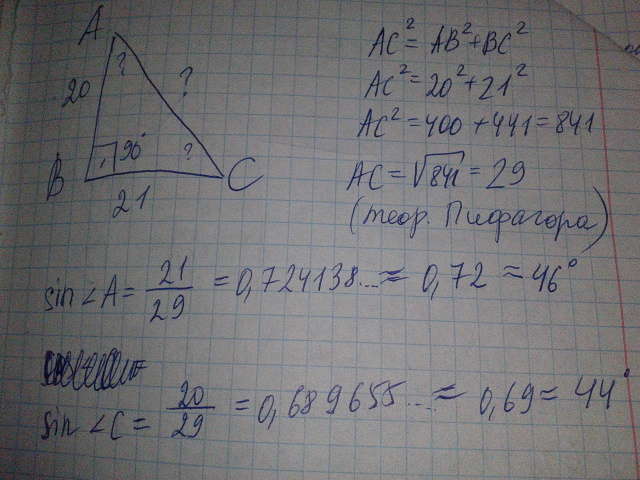 A
?
?
20
90°
?
B
C
21
AC² = AB² + BC²
AC² = 20² + 21²
AC² = 400 + 441 = 841
AC = √841 = 29
(теор. Пифагора)
sin∠A = 21/29 = 0,724138... ≈ 0,72 ≈ 46°
sin∠C = 20/29 = 0,689655... ≈ 0,69 ≈ 44°